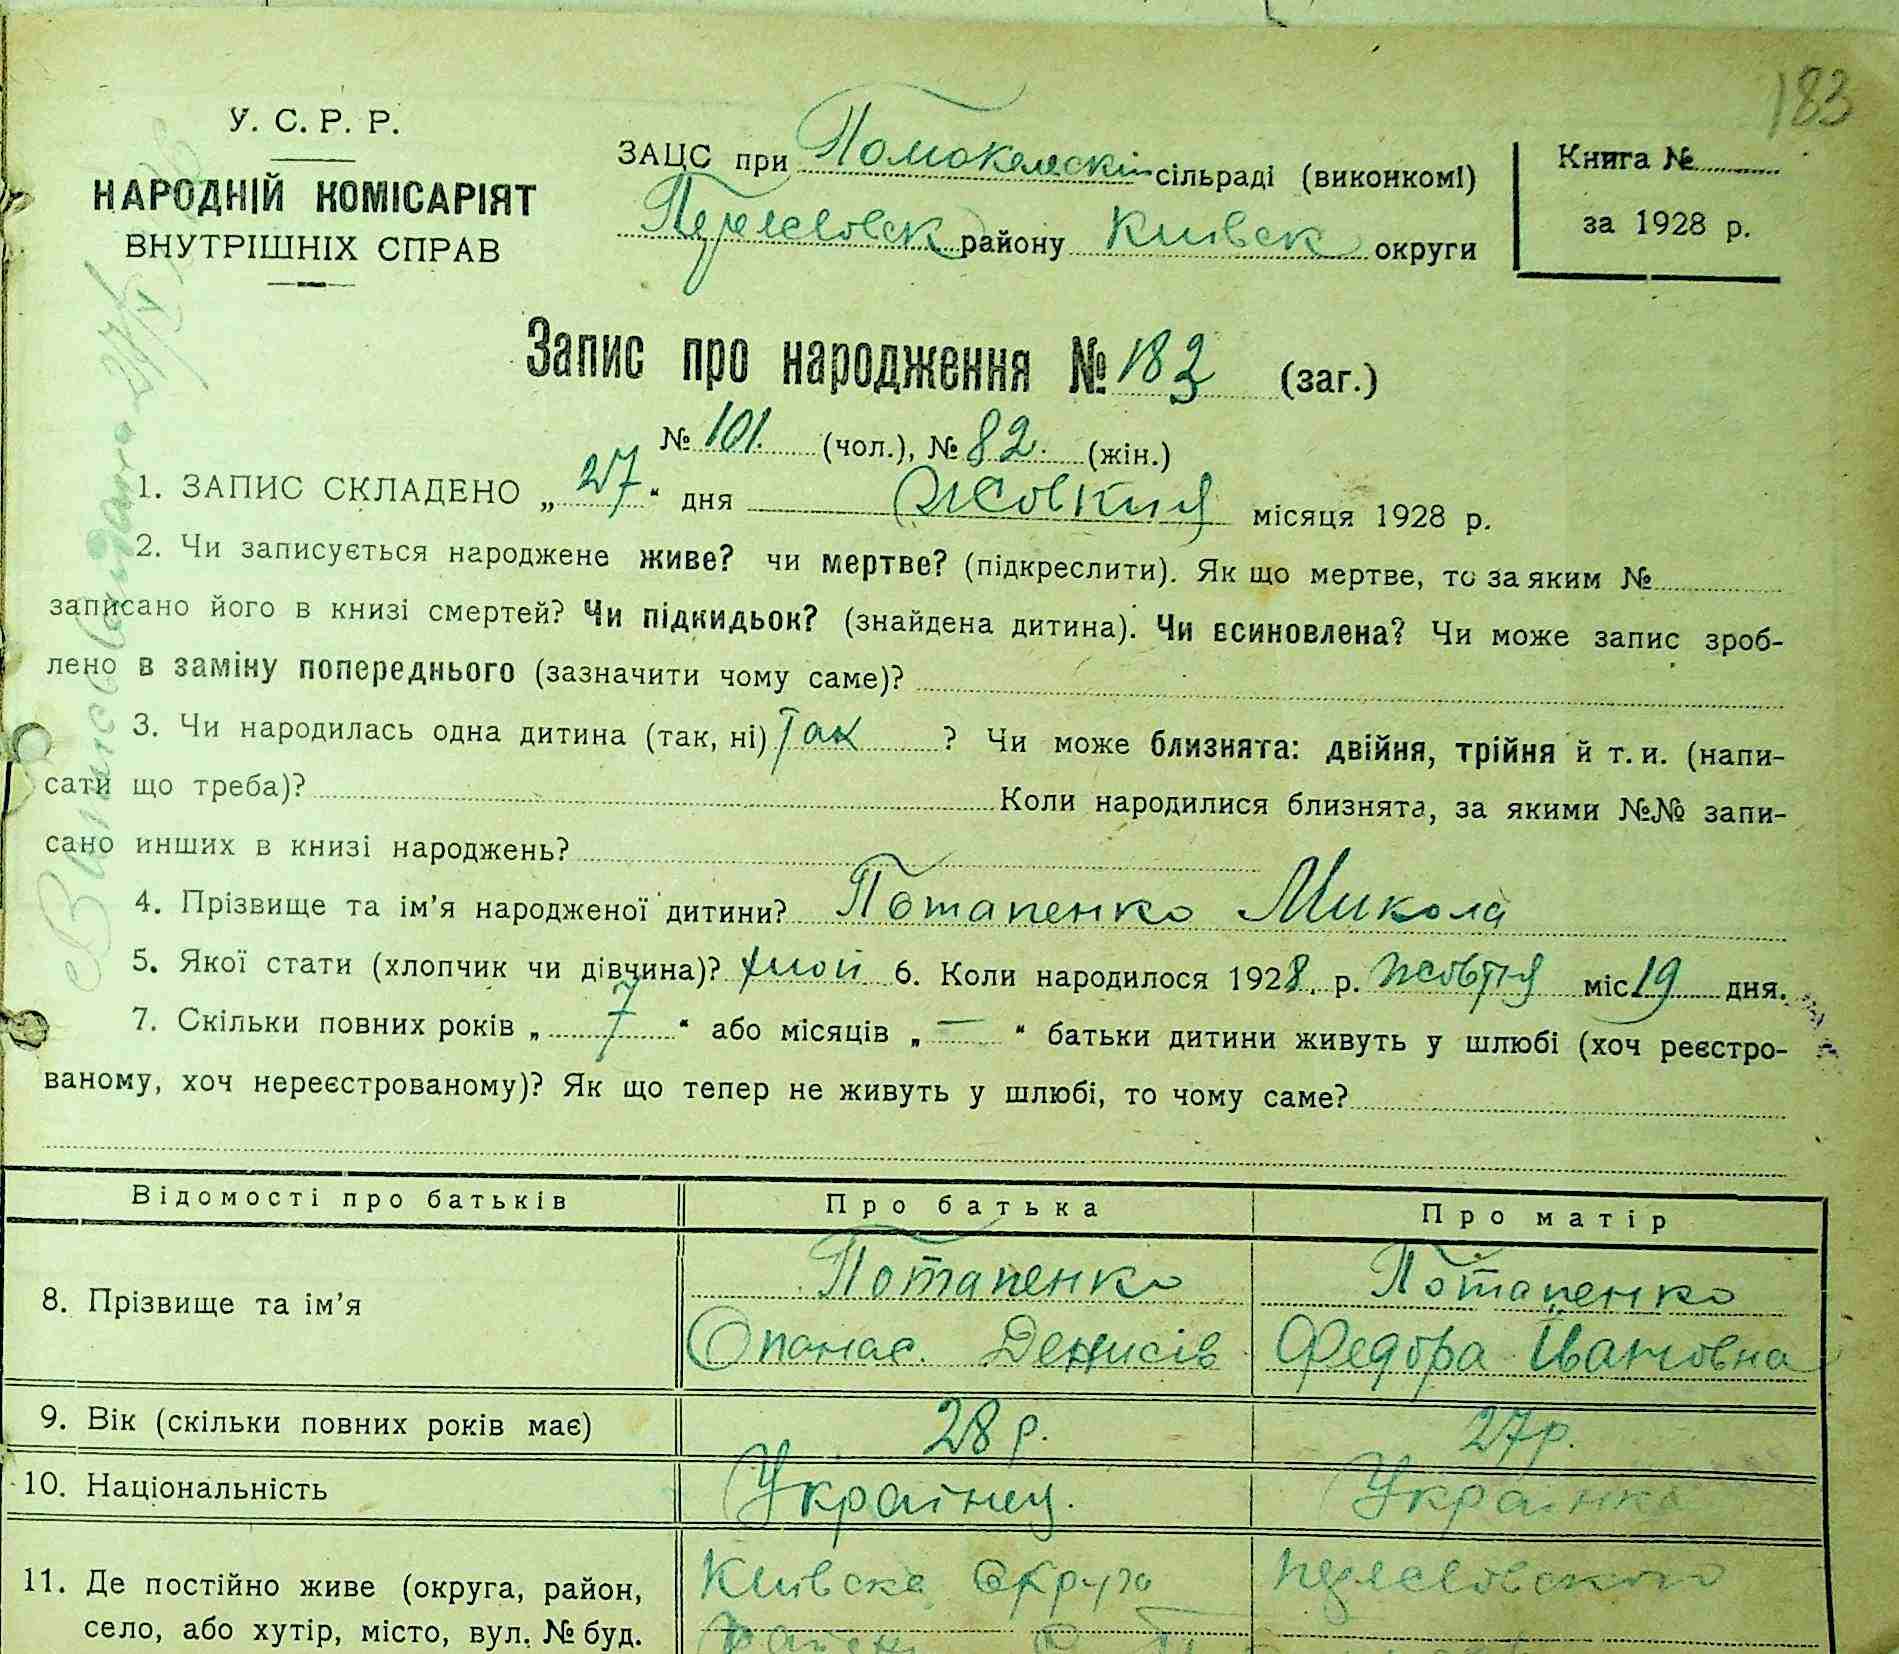 183
У. С. Р. Р.
НАРОДНІЙ КОМІСАРІЯТ
ВНУТРІШНІХ СПРАВ
ЗАЦС при Помокельскій сільраді (виконкомі)
района Київск округи
Книга №
за 1928 р.
Запис про народження № 183 (заг.)
№ 101. (чол.), № 82. (жін.)
1. ЗАПИС СКЛАДЕНО „27“ дня місяця 1928 р.
2. Чи записується народжене живе? чи мертве? (підкреслити). Як що мертве, то за яким №
записано його в книзі смертей? Чи підкидьок? (знайдена дитина). Чи всиновлена? Чи може запис зроб-
лено в заміну попереднього (зазначити чому саме)?
3. Чи народилась одна дитина (так, ні) Так ? Чи може близнята: двійня, трійня й т. и. (напи-
сати що треба)? Коли народилися близнята, за якими №№ запи-
сано инших в книзі народжень?
4. Прізвище та ім’я народженої дитини? Потапенко Микола
5. Якої стати (хлопчик чи дівчина)? 6. Коли народилося 1928. р. жовтня міс 19 дня.
7. Скільки повних років „7“ або місяців „—“ батьки дитини живуть у шлюбі (хоч реєстро-
ваному, хоч нереєстрованому)? Як що тепер не живуть у шлюбі, то чому саме?
Відомості про батьків Про батька Про матір
8. Прізвище та ім’я Потапенко Потапенко
Опанас. Денисів Федора Івановна
9. Вік (скільки повних років має) 28 р. 27 р.
10. Національність Українец. Українка
11. Де постійно живе (округа, район, Київска округа
село, або хутір, місто, вул. № буд.